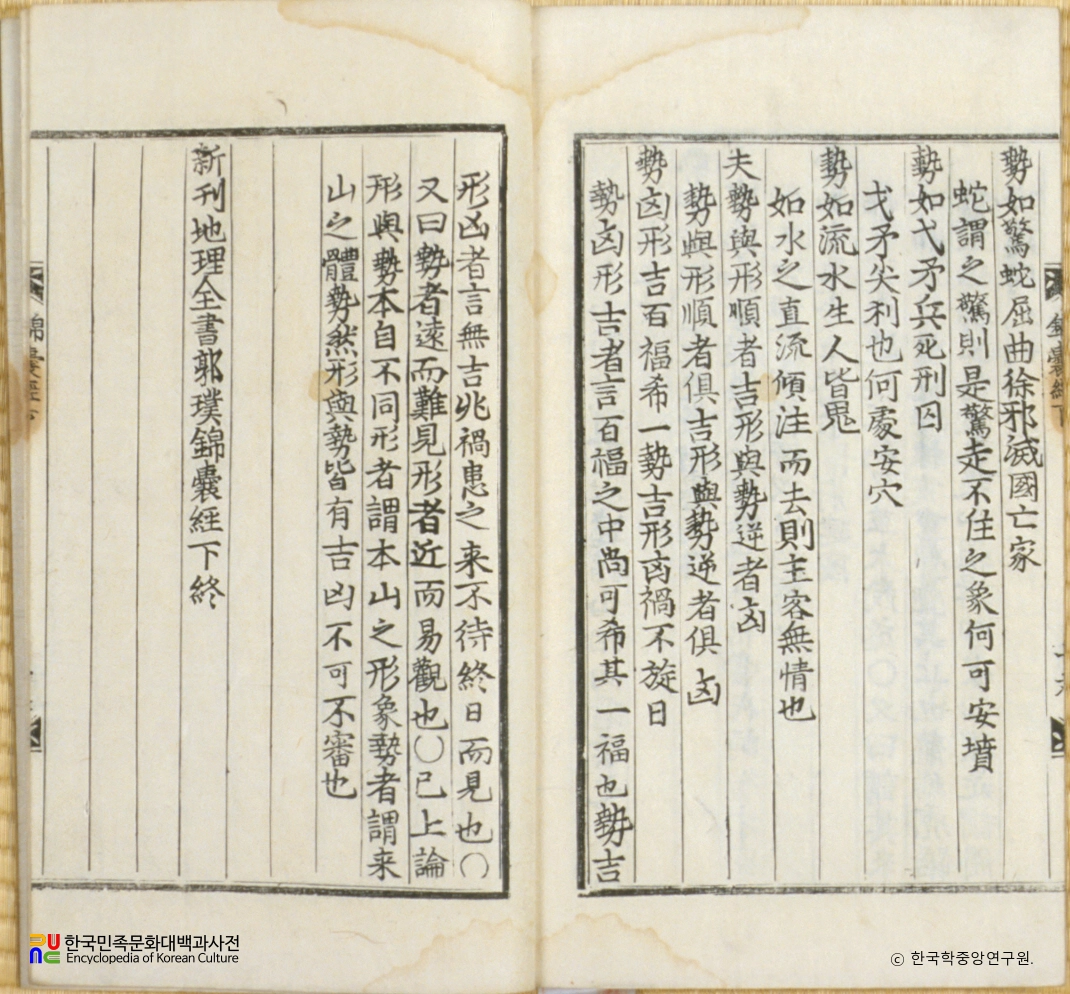 勢如驚蛇屈曲徐邪滅國亡家
蛇謂之驚則是驚走不住之象何可安墳
勢如戈矛兵死刑囚
戈矛尖利也何處安穴
勢如流水生人皆鬼
如水之直流傾注而去則主客無情也
夫勢與形順者吉形與勢逆者凶
勢與形順者俱吉形與勢逆者俱凶
勢凶形吉百福希一勢吉形凶禍不旋日
勢凶形吉者言百福之中尚可希其一福也勢吉
形凶者言無吉兆禍患之来不待終日而見也〇
又曰勢者遠而難見形者近而易觀也〇已上論
形與勢本自不同形者謂本山之形象勢者謂来
山之體勢然形與勢皆有吉凶不可不審也
新刊地理全書郭璞錦囊経下終
한국민족문화대백과사전
Encyclopedia of Korean Culture
ⓒ 한국학중앙연구원.